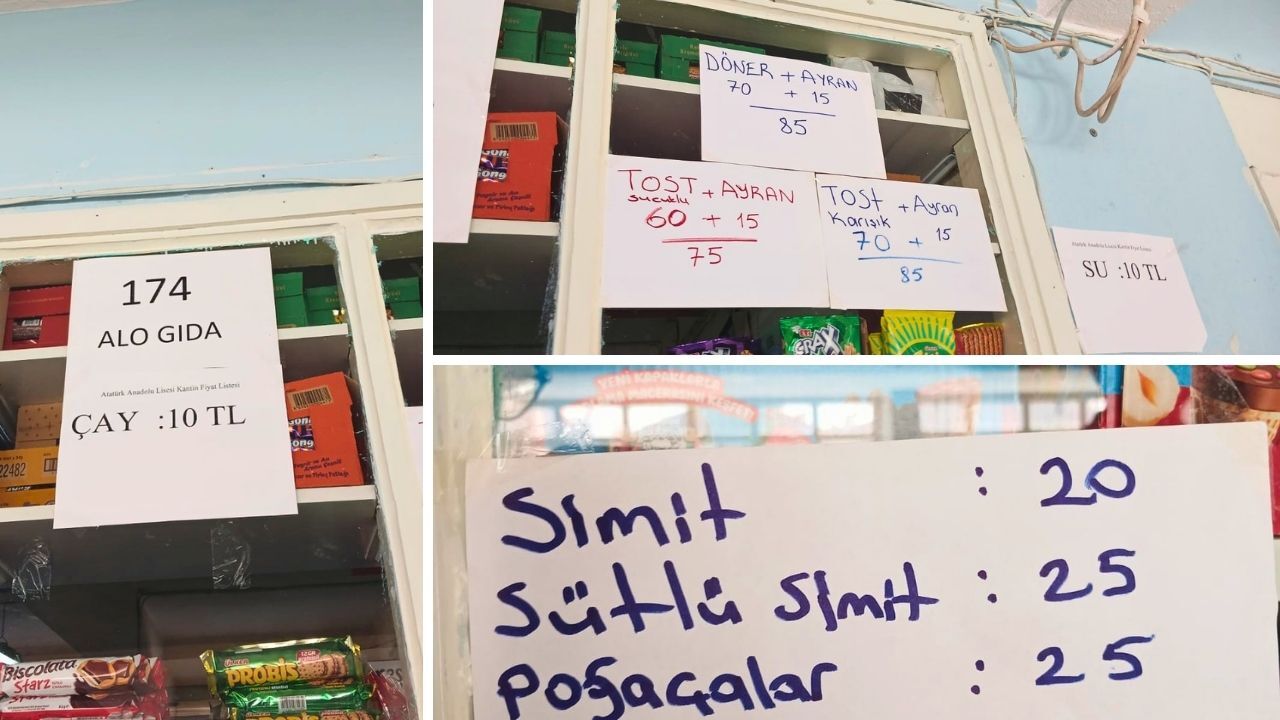 174
ALO GIDA
Atatürk Anadolu Lisesi Kantin Fiyat Listesi
ÇAY :10 TL
22482
Biscolata
Starz
ÜLKER
PROBİS
DÖNER + AYRAN
70 + 15
85
TOST + AYRAN
sucuklu
60 + 15
75
TOST + Ayran
Karışık
70 + 15
85
Atatürk Anadolu Lisesi Kantin Fiyat Listesi
SU :10 TL
CRAX
YENİ KAPAKLARLA
Simit : 20
Sütlü simit : 25
Poğaçalar : 25